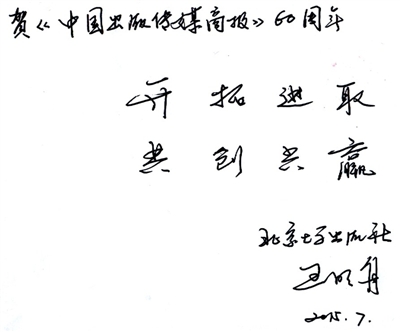 贺《中国出版传媒商报》60周年
开拓进取
共创共赢
北京大学出版社
王明舟
2015.7.